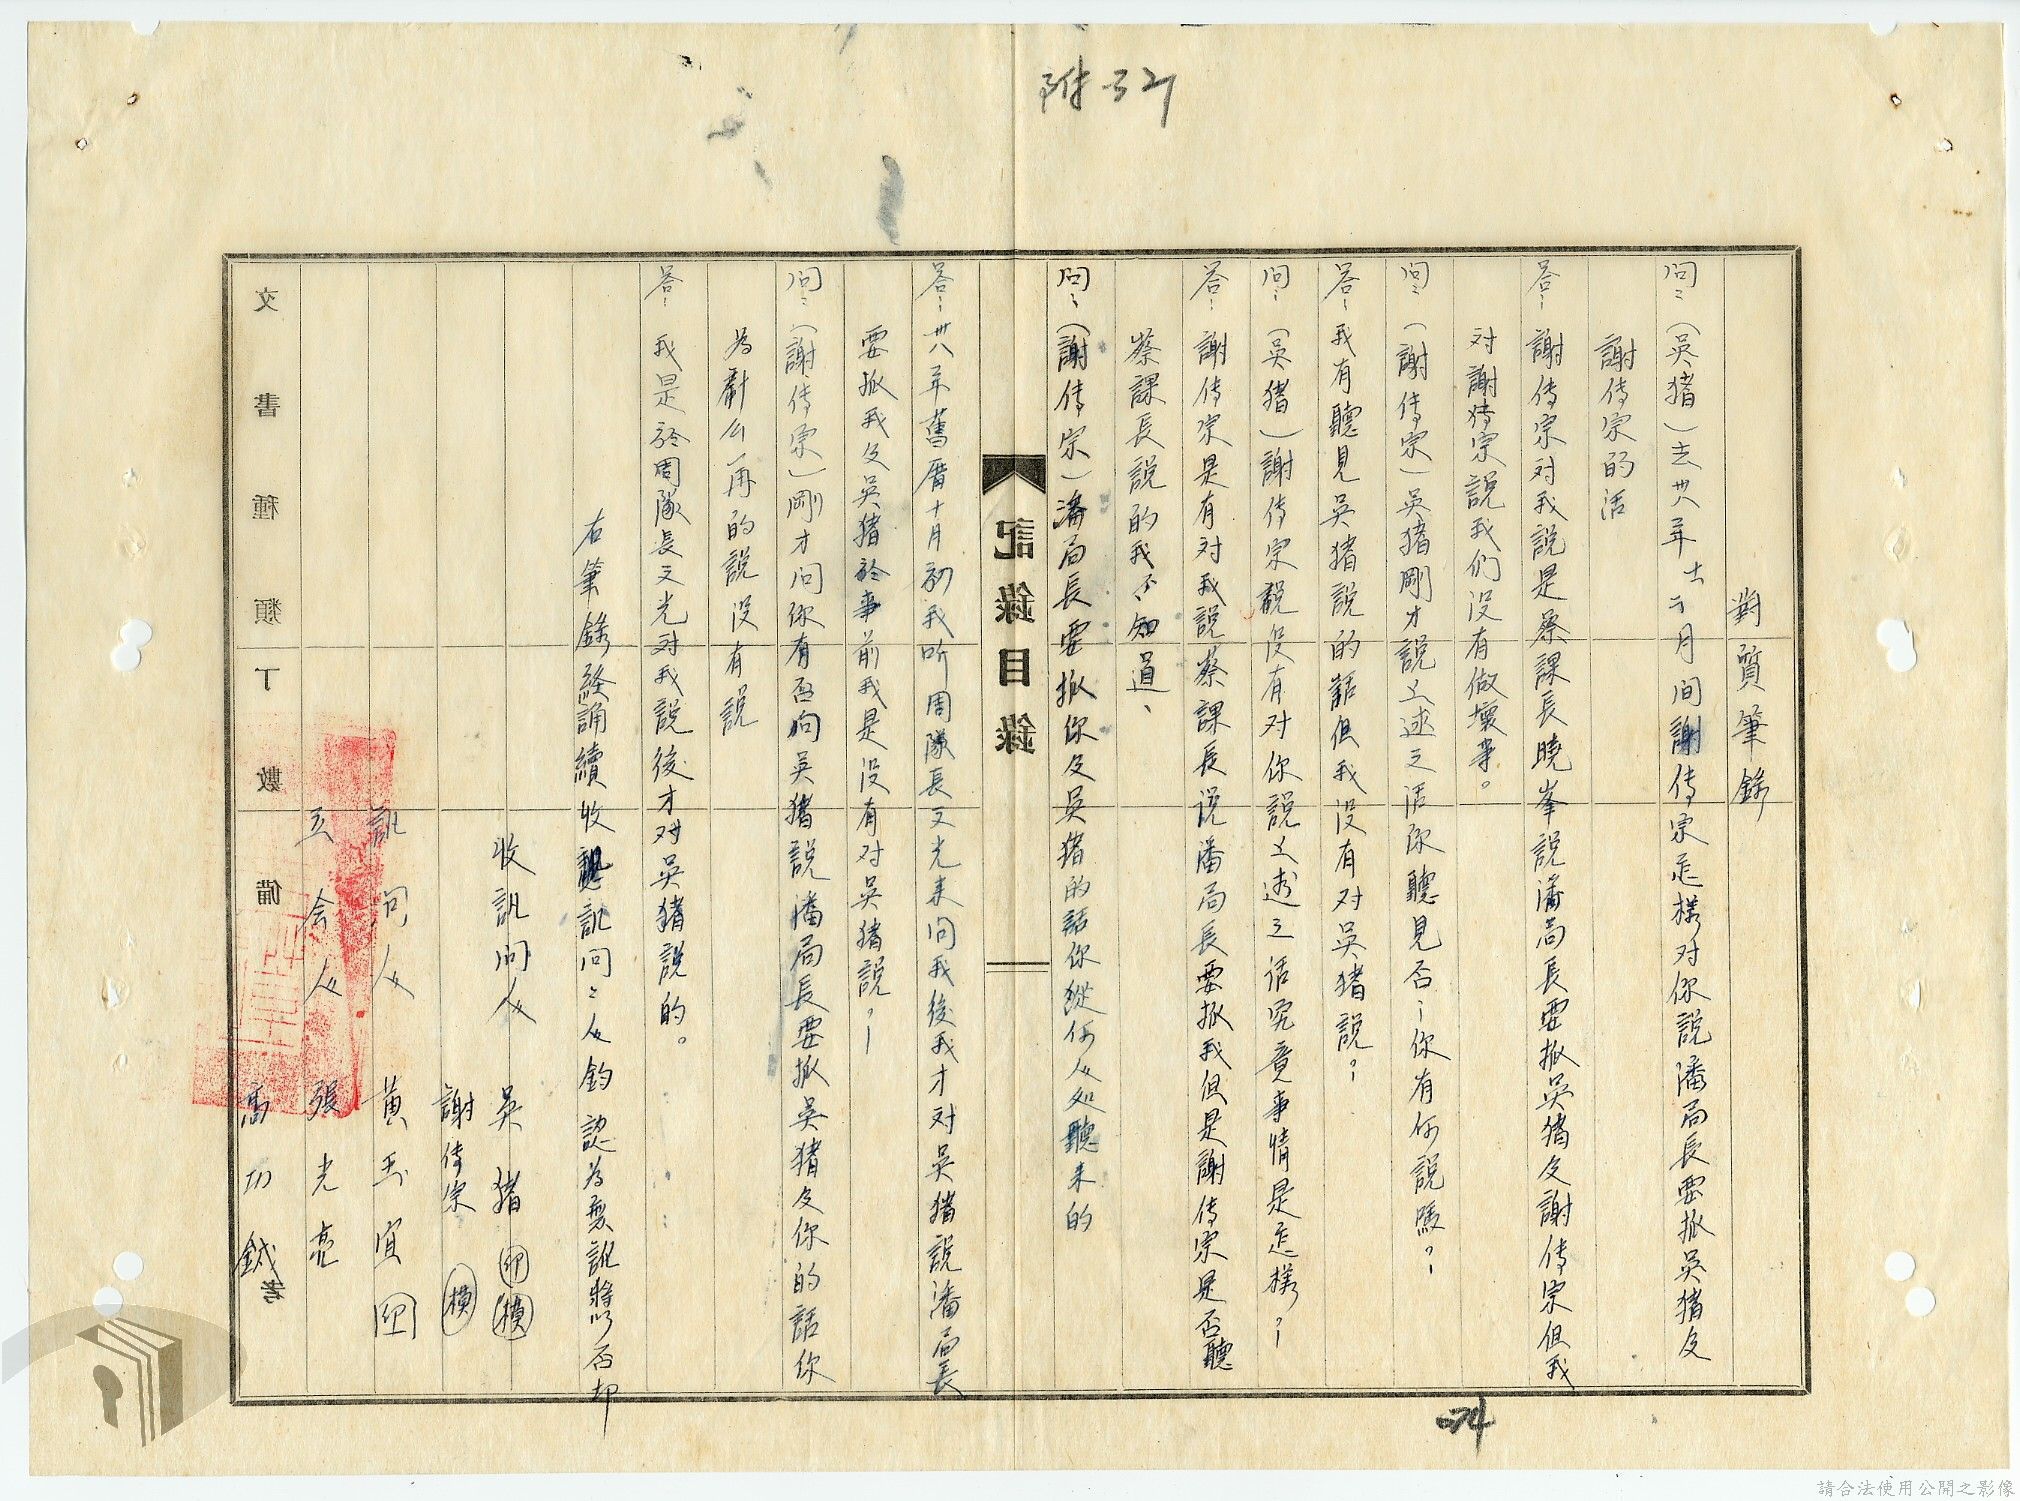 附-32
對質筆錄
問：(吳猪)去卅八年十二月间謝傳宗怎樣对你説潘局長要抓吳猪及
謝傳宗的活
答：謝傳宗对我説是蔡課長曉峯説潘局長要抓吳猪及謝傳宗但我
对謝傳宗説我们没有做壞事。
問：(謝傳宗)吳猪剛才説上述之活你聽見否：你有何説嗎？
答：我有聽見吳猪説的話但我没有对吳猪説。
問：(吳猪)謝傳宗説没有对你説上述之话究竟事情是怎樣？
答：謝傳宗是有对我説蔡課長说潘局長要抓我但是謝傳宗是否聽
蔡課長説的我不知道、
問：(謝傳宗)潘局長要抓你及吳猪的話你縱何人处聽来的
記錄目錄
答：卅八年舊厝十月初我听周隊長文光来问我後我才对吳猪説潘局長
要抓我及吳猪於事前我是没有对吳猪説。
問：(謝傳宗)剛才问你有否向吳猪說潘局長要抓吳猪及你的話你
為甚么再的説没有説
答：我是於周隊長文光对我説後才对吳猪説的。
右筆錄経誦續收訊问之人鈞認為無訛將盾却
收訊问人 吳猪 印 模
謝傳宗 模
訊问人 黄玉宜 印
在会人 張光亮
馮功鉞
文書種類 丁數 備考
74
請合法使用公開之影像